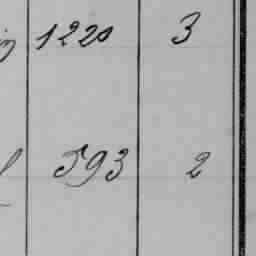 1220 3
593 2